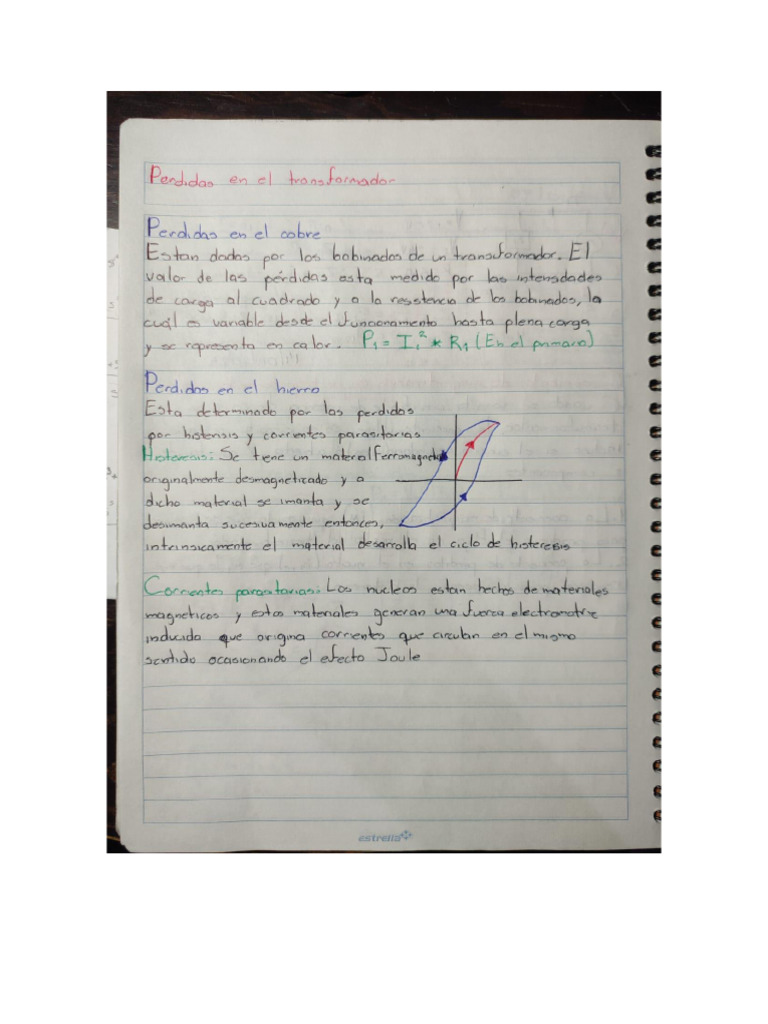 Perdidas en el transformador
Perdidas en el cobre
Estan dadas por los bobinados de un transformador. El
valor de las pérdidas esta medido por las intensidades
de carga al cuadrado y a la resistencia de los bobinados, la
cuál es variable desde el funcionamento hasta plena carga
y se representa en calor. P₁ = I₁² * R₁ (En el primario)
Perdidas en el hierro
Esta determinado por las perdidas
por histeresis y corrientes parasitarias
Histeresis: Se tiene un material ferromagnetico
originalmente desmagneticado y a
dicho material se imanta y se
desimanta sucesivamente entonces,
intrinsicamente el material desarrolla el ciclo de histeresis
Corrientes parasitarias: Los nucleos estan hechos de materiales
magneticos y estos materiales generan una fuerza electromotriz
inducida que origina corrientes que circulan en el mismo
sentido ocasionando el efecto Joule
estrella